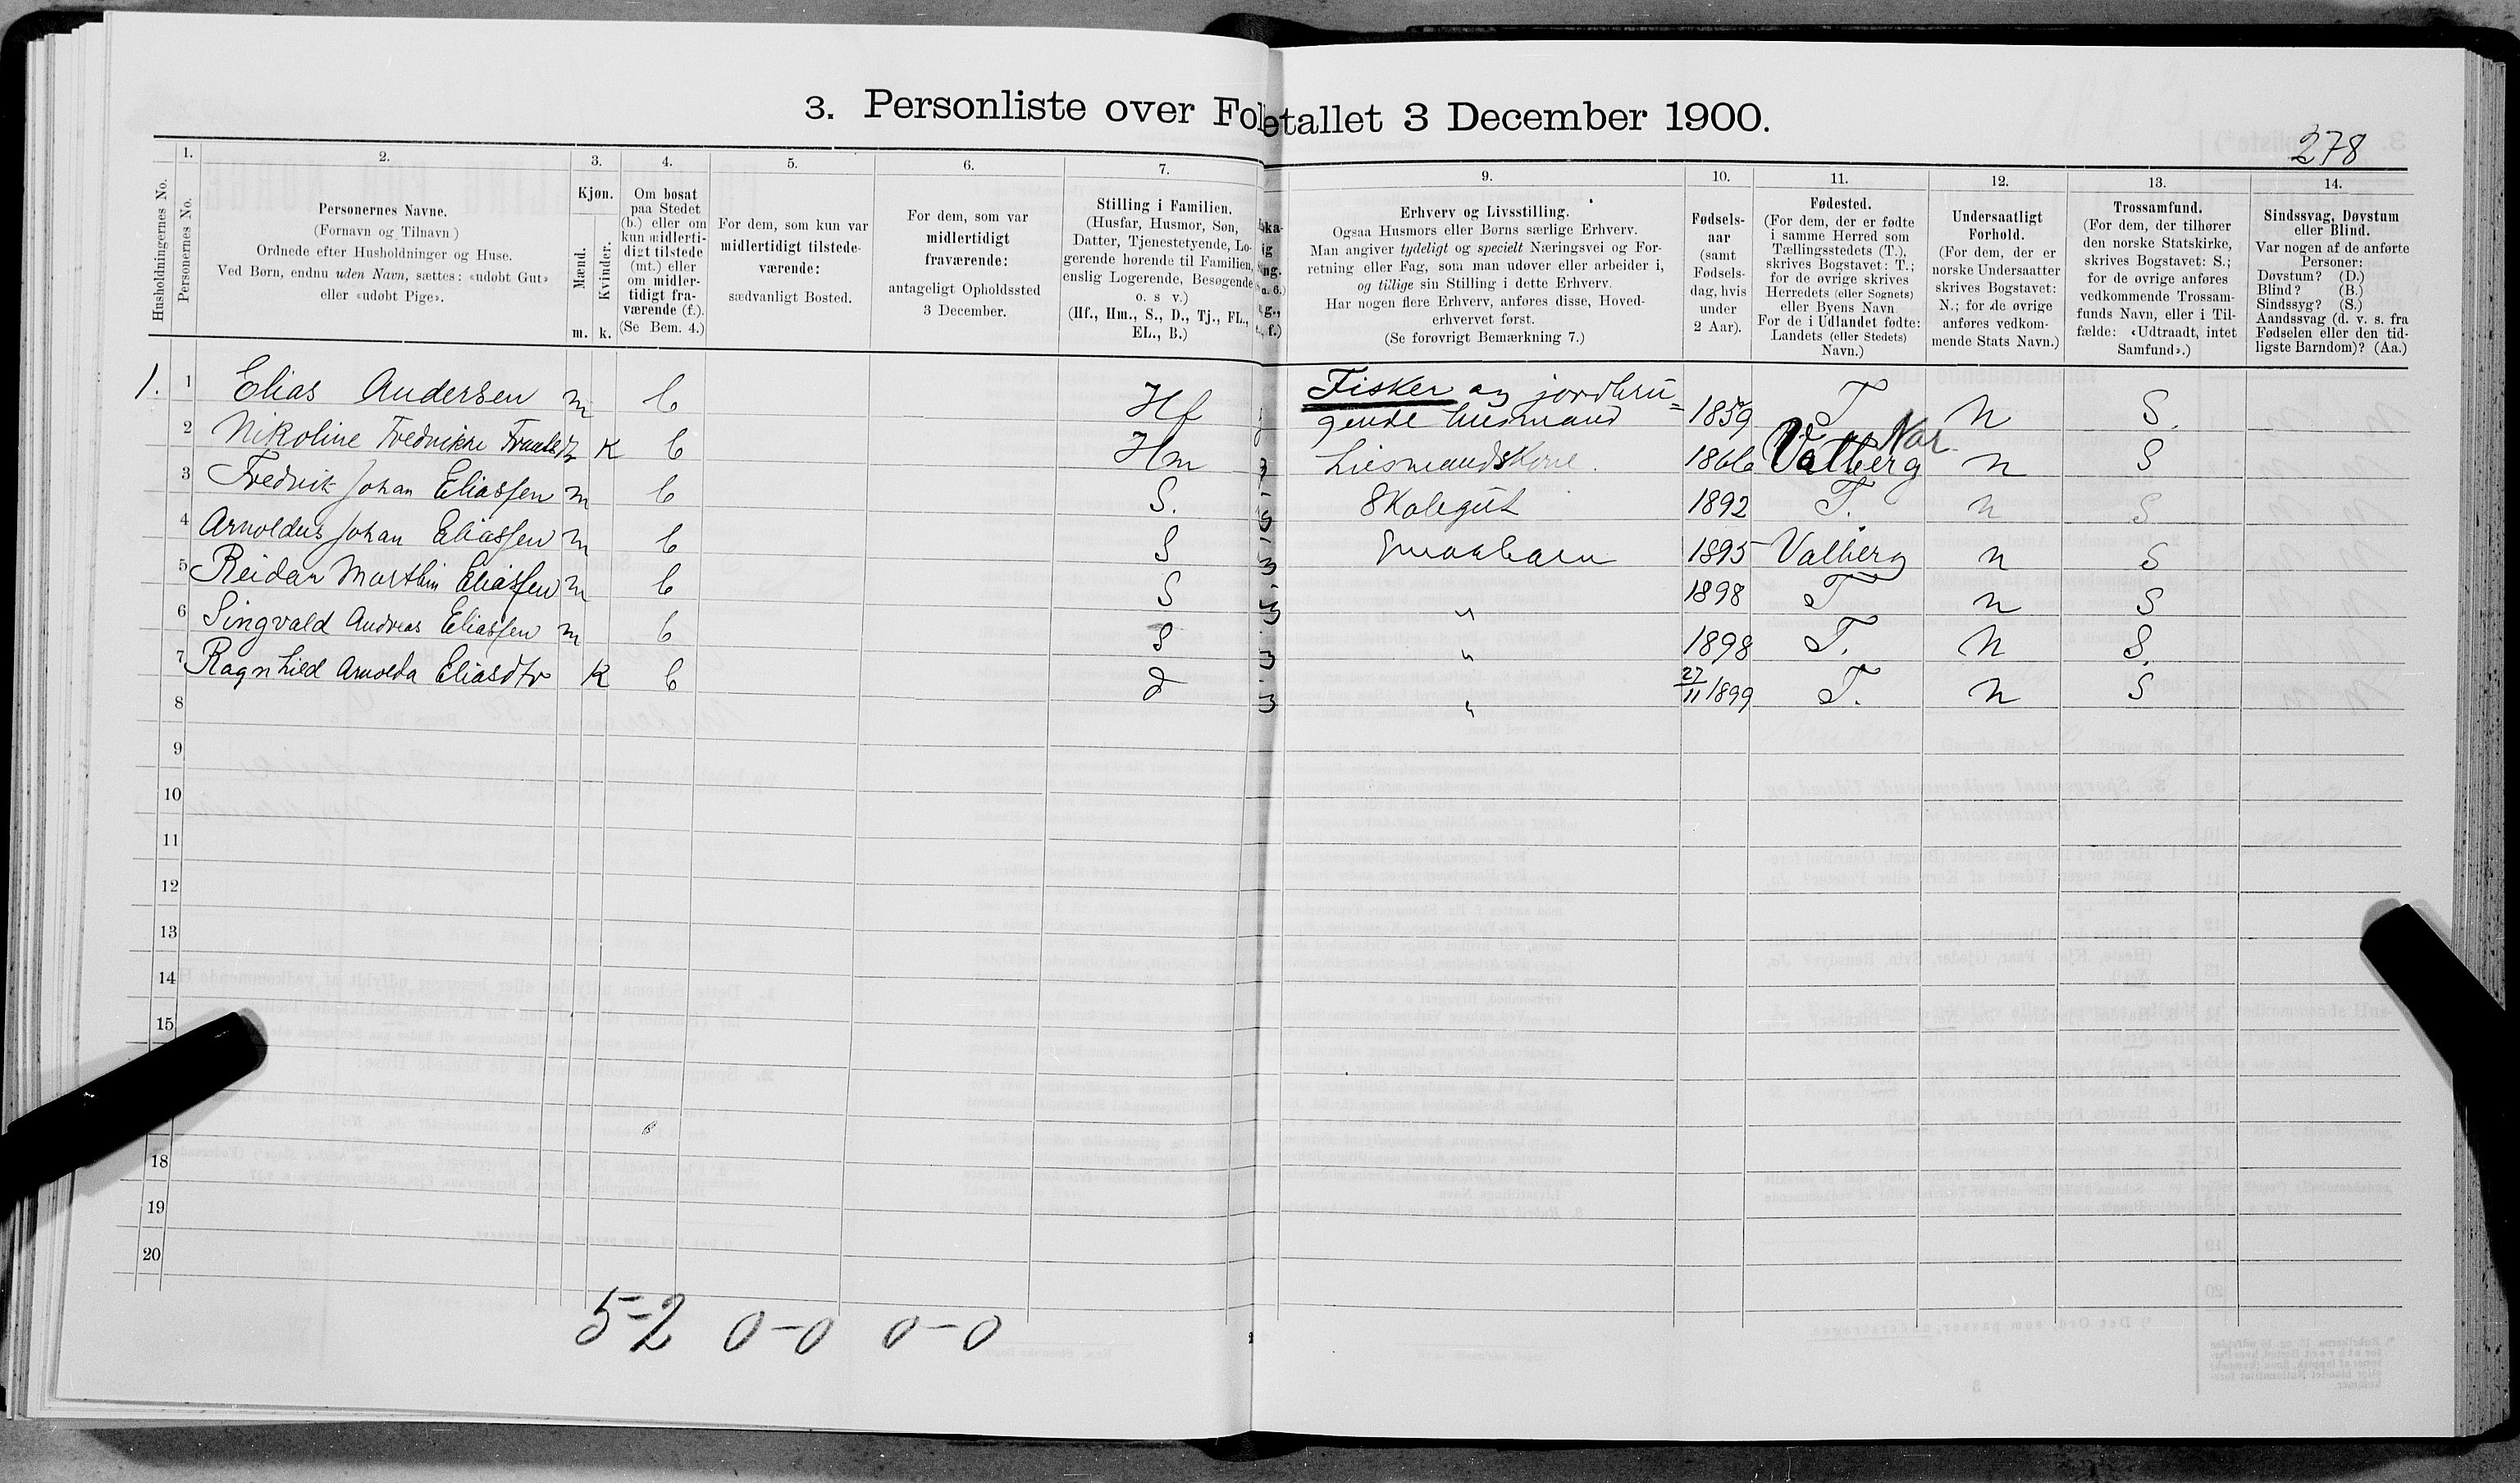 3. Personliste over Folketallet 3 December 1900.
278
1.
2.
3.
4.
5.
6.
7.
9.
10.
11.
12.
13.
14.
Husholdningernes No.
Personernes No.
Personernes Navne.
(Fornavn og Tilnavn)
Ordnede efter Husholdninger og Huse.
Ved Børn, endnu uden Navn, sættes: «udøbt Gut»
eller «udøbt Pige».
Kjøn.
Mænd.
Kvinder.
m. k.
Om bosat
paa Stedet
(b.) eller om
kun midlerti-
digt tilstede
(mt.) eller
om midler-
tidigt fra-
værende (f.).
(Se Bem. 4.)
For dem, som kun var
midlertidigt tilstede-
værende:
sædvanligt Bosted.
For dem, som var
midlertidigt
fraværende:
antageligt Opholdssted
3 December.
Stilling i Familien.
(Husfar, Husmor, Søn,
Datter, Tjenestetyende, Lo-
gerende hørende til Familien,
enslig Logerende, Besøgende
o. s v.)
(Hf., Hm., S., D., Tj., FL.,
EL., B.)
Erhverv og Livsstilling.
Ogsaa Husmors eller Børns særlige Erhverv.
Man angiver tydeligt og specielt Næringsvei og For-
retning eller Fag, som man udøver eller arbeider i,
og tillige sin Stilling i dette Erhverv.
Har nogen flere Erhverv, anføres disse, Hoved-
erhvervet først.
(Se forøvrigt Bemærkning 7.)
Fødsels-
aar
(samt
Fødsels-
dag, hvis
under
2 Aar).
Fødested.
(For dem, der er fødte
i samme Herred som
Tællingsstedets (T.),
skrives Bogstavet: T.;
for de øvrige skrives
Herredets (eller Sognets)
eller Byens Navn
For de i Udlandet fødte:
Landets (eller Stedets)
Navn.)
Undersaatligt
Forhold.
(For dem, der er
norske Undersaatter
skrives Bogstavet:
N.; for de øvrige
anføres vedkom-
mende Stats Navn.)
Trossamfund.
(For dem, der tilhører
den norske Statskirke,
skrives Bogstavet: S.;
for de øvrige anføres
vedkommende Trossam-
funds Navn, eller i Til-
fælde: «Udtraadt, intet
Samfund».)
Sindssvag, Døvstum
eller Blind.
Var nogen af de anførte
Personer:
Døvstum? (D.)
Blind? (B.)
Sindssyg? (S.)
Aandssvag (d. v. s. fra
Fødselen eller den tid-
ligste Barndom)? (Aa.)
1. 1 Elias Andersen m b Hf Fisker og jordbru= gende husmand 1859 T n S.
2 Nikoline Fredrikke K b Hm husmandskone. 1866 Valberg Nor n S
3 Fredrik Johan Eliassen m b S. Skolegut 1892 T. n S
4 Arnoldus Johan Eliassen m b S Smaabarn 1895 Valberg n S
5 Reidar Marthin Eliassen m b S " 1898 T n S
6 Singvald Andreas Eliassen m b S " 1898 T. n S.
7 Ragnhild Arnolda Eliasdtr K b d " 27/11 1899 T. n S
8
9
10
11
12
13
14
15
18
19
20
5-2 0-0 0-0